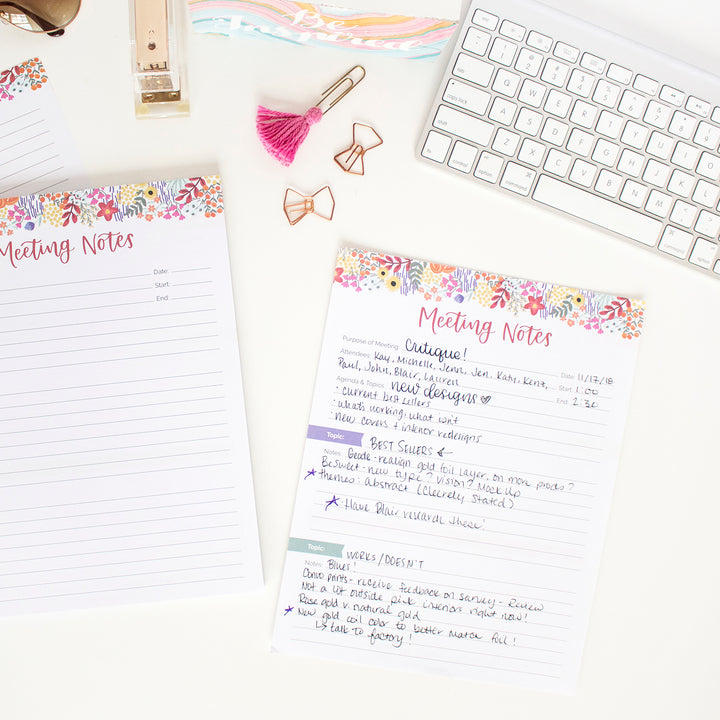 Be
Inspired
Meeting Notes
Date:
Start:
End:
Meeting Notes
Purpose of Meeting: Critique!
Date: 11/17/18
Attendees: Kay, Michelle, Jenn, Jen, Katy, Kent,
Start: 1:00
Paul, John, Blair, Lauren
End: 2:30
Agenda & Topics: new designs
• current best sellers
• what's working, what isn't
• new covers + interior redesigns
Topic: BEST SELLERS
Notes: Geode - realign gold foil layer, on more prods?
BeSweet - new type? vision? Mock Up
themes: Abstract (clearly stated)
Have Blair research these!
Topic: WORKS/DOESN'T
Notes: Blues!
Convo prints - receive feedback on survey - Review
Not a lot outside pink interiors right now!
Rose gold v. natural gold
New gold coil color to better match foil!
↳ talk to factory!
caps lock
shift
fn
control
option
command
command
option